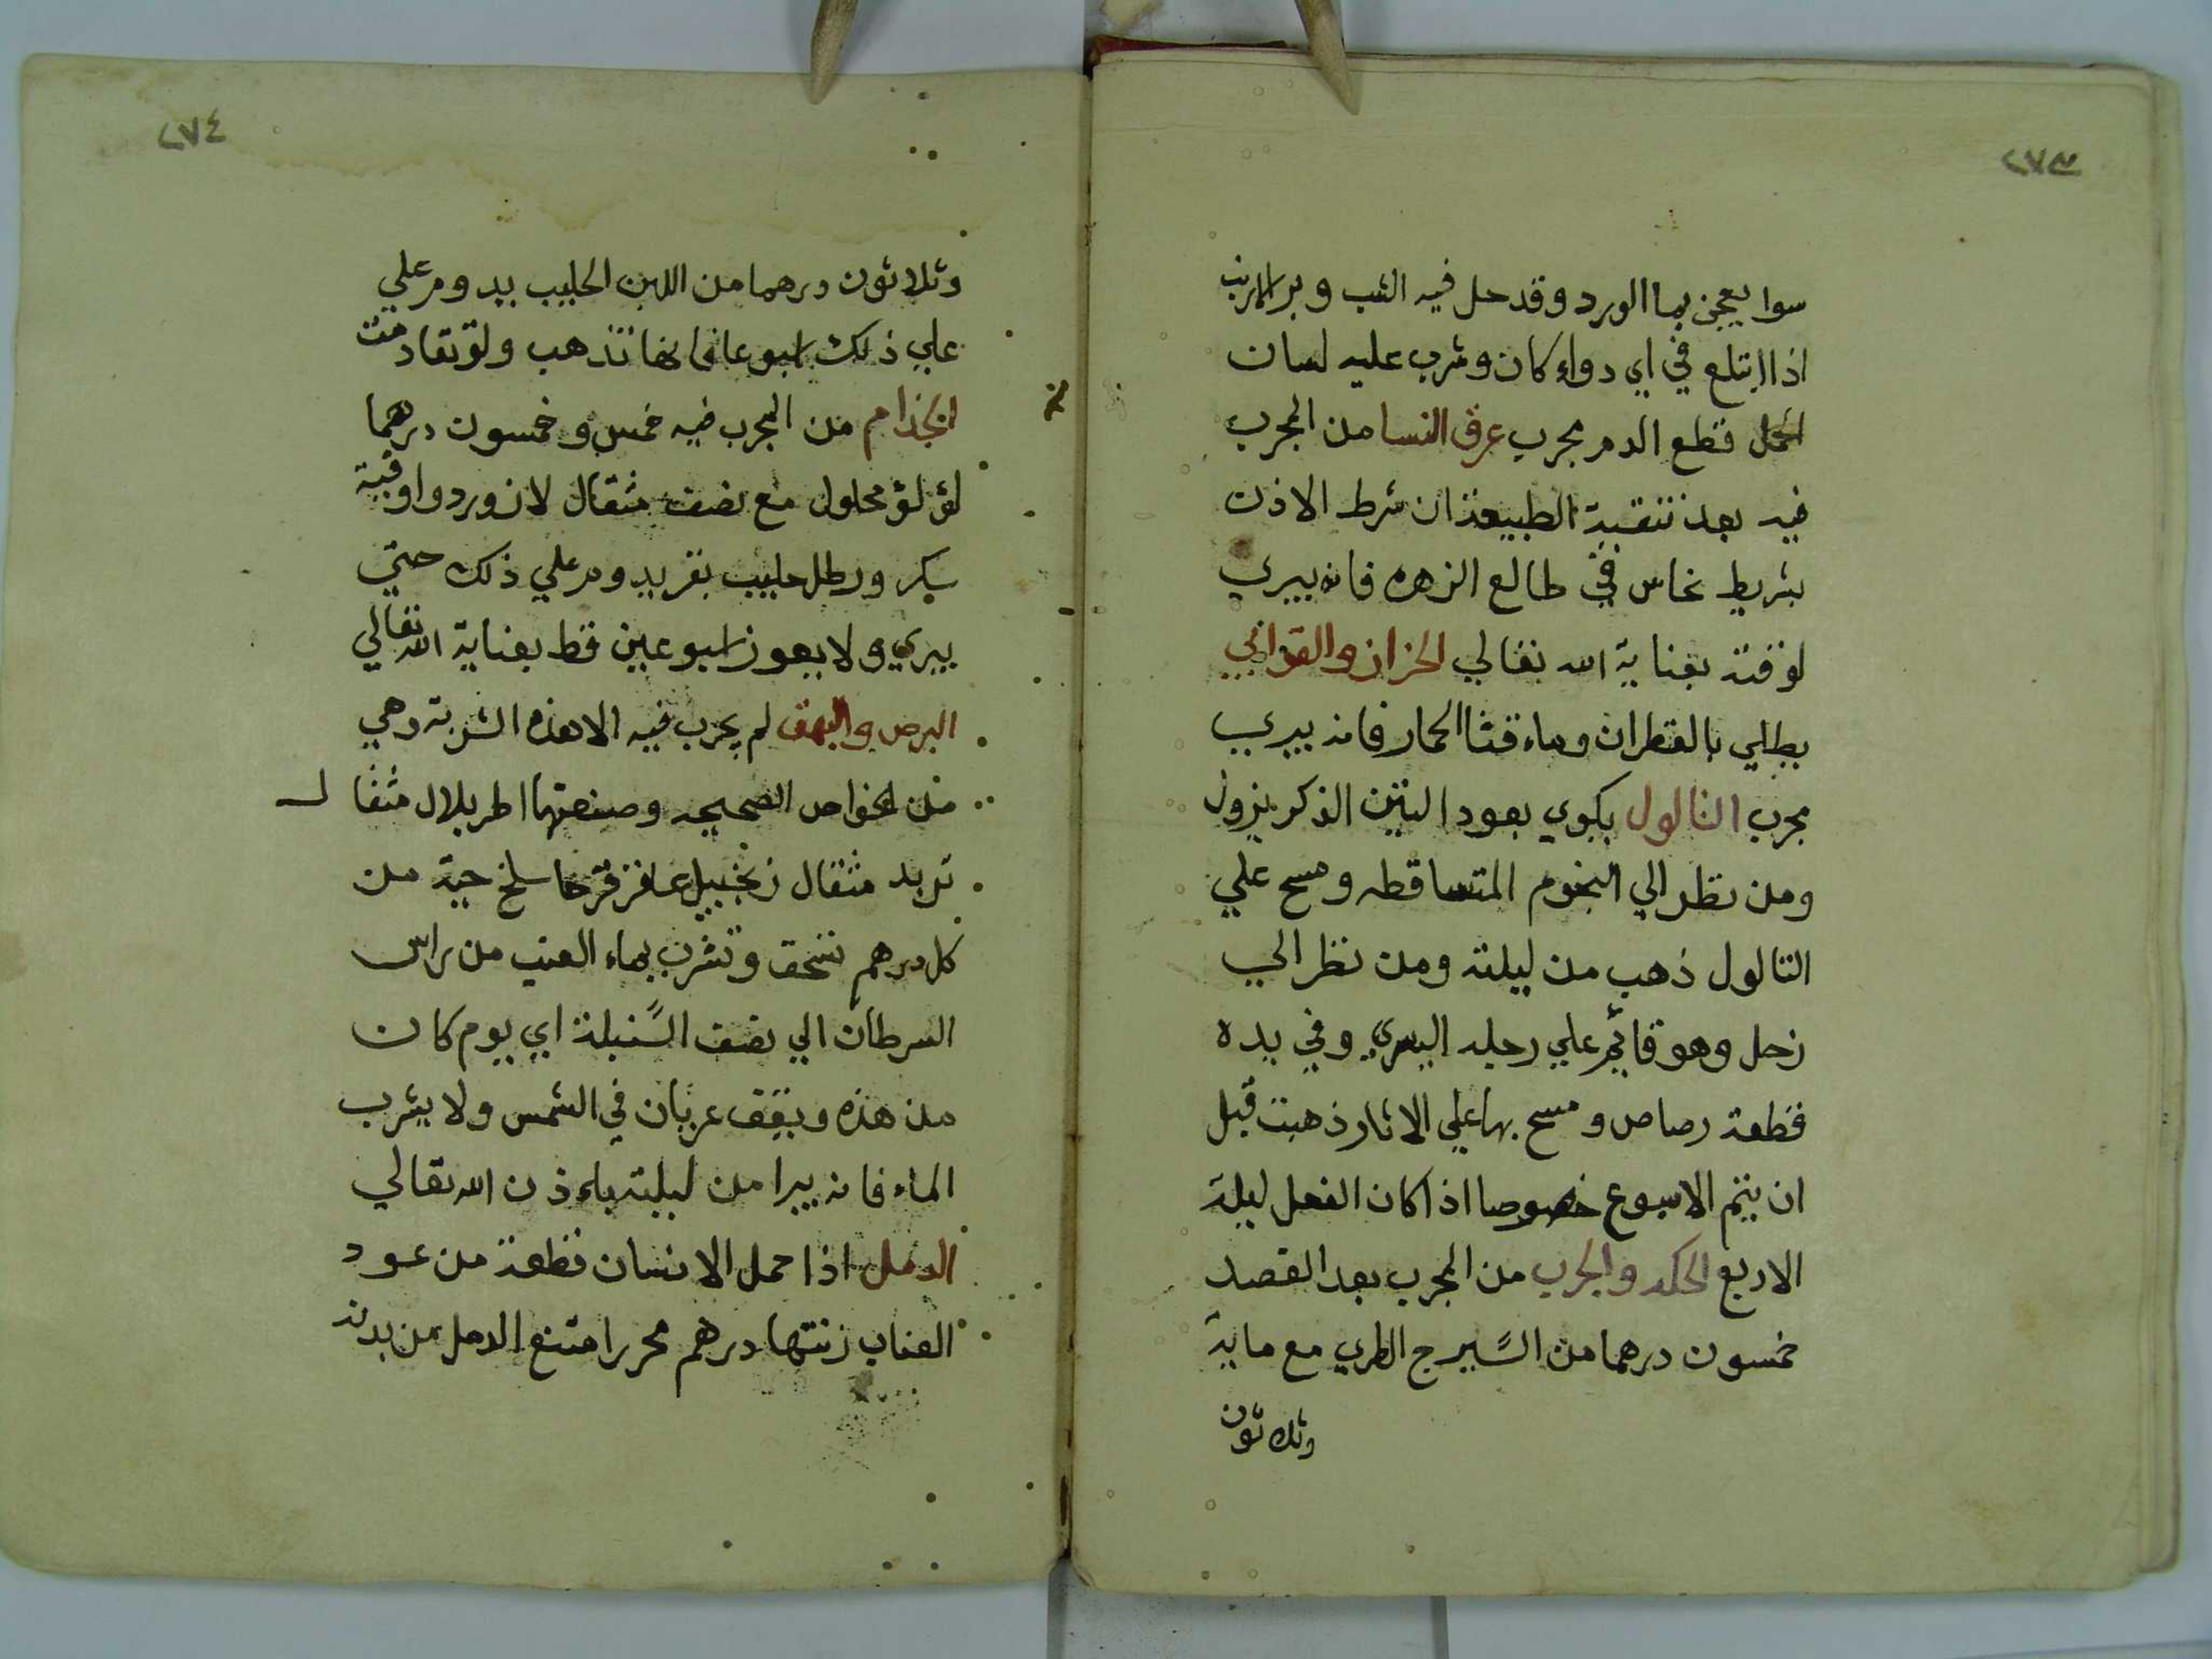 ٢٧٣
سوا يعجن بماالورد وقدحل فيه الشب وبرالارنب
اذاابتلع في اي دواء كان وشرب عليه لسان
الحمل قطع الدم مجرب عرق النسا من المجرب
فيه بعد تنقية الطبيعة ان شرط الاذن
بشريط نحاس في طالع الزهره فانه يبري
لوقته بعناية الله تعالي الحزاز والقوابي
يطلي بالقطران وماء قثاالحمار فانه يبري
مجرب الثالول يكوي بعود التين الذكر يزول
ومن نظر الي النجوم المتساقطه ومسح علي
الثالول ذهب من ليلته ومن نظر الي
زحل وهو قائم علي رجله اليسري وفي يده
قطعة رصاص ومسح بها علي الاثار ذهبت قبل
ان يتم الاسبوع خصوصا اذا كان الفعل ليلة
الاربع الحكه والجرب من المجرب بعد الفصد
خمسون درهما من السيرج الطري مع ماية
وثلاثون
٢٧٤
وثلاثون درهما من اللبن الحليب يدوم علي
علي ذلك اسبوعا فانها تذهب ولو تقادمت
الجذام من المجرب فيه خمس وخمسون درهما
لؤلؤ محلول مع نصف مثقال لازورد واوقية
سكر ورطل حليب بقر يدوم علي ذلك حتي
يبري ولا يعوز اسبوعين قط بعناية الله تعالي
البرص والبهق لم يجرب فيه الا هذه الشربة وهي
من الخواص الصحيحه وصنعتها اطريلال مثقال
تربد مثقال زنجبيل عاقرقرحا سلخ حية من
كل درهم تسحق وتشرب بماء العنب من راس
السرطان الي نصف السنبلة اي يوم كان
من هذه ويقف عريان في الشمس ولا يشرب
الماء فانه يبرا من ليلته باءذن الله تعالي
الدمل اذا حمل الانسان قطعة من عود
العناب زنتها درهم محررا متنع الدمل من بدنه